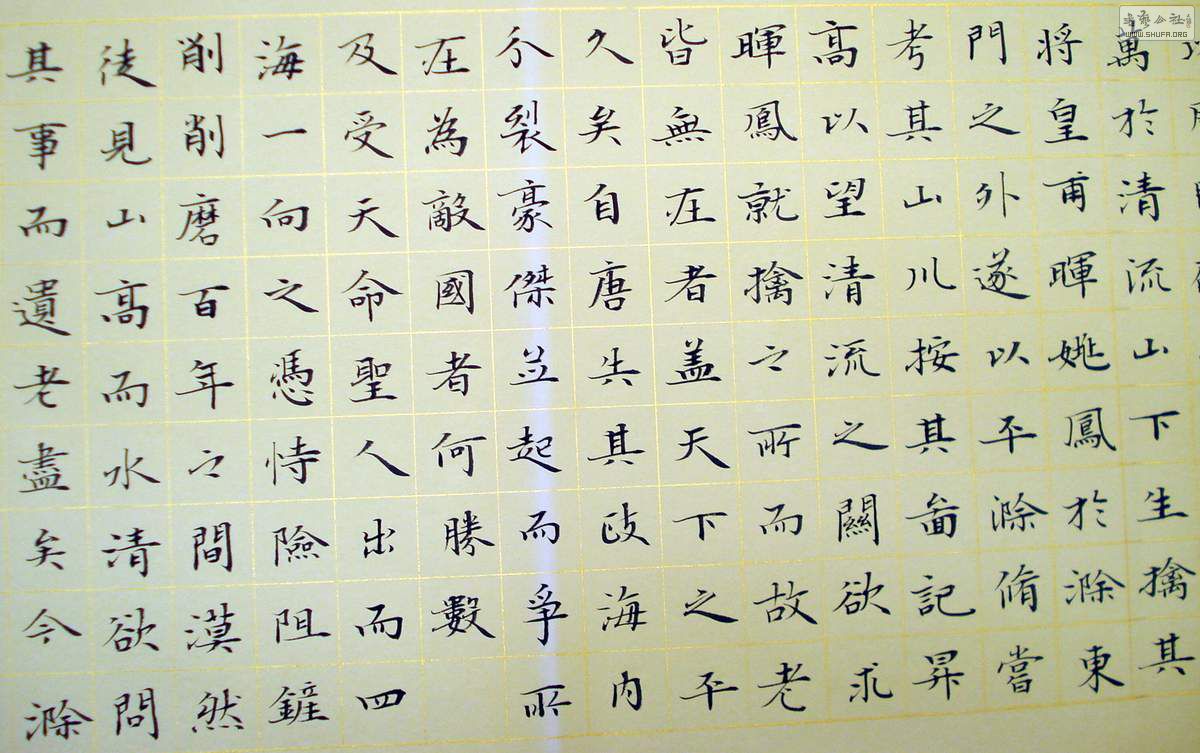 萬於清流山下生擒其
将皇甫暉姚鳳於滁東
門之外遂以平滁脩嘗
考其山川按其啚記昇
高以望清流之關欲求
暉鳳就擒之所而故老
皆無在者盖天下之平
久矣自唐失其政海内
分裂豪傑並起而爭所
在為敵國者何勝數
及受天命聖人出而四
海一向之憑恃險阻鏟
削削磨百年之間漠然
徒見山高而水清欲問
其事而遺老盡矣今滁
書藝公社
WWW.SHUFA.ORG